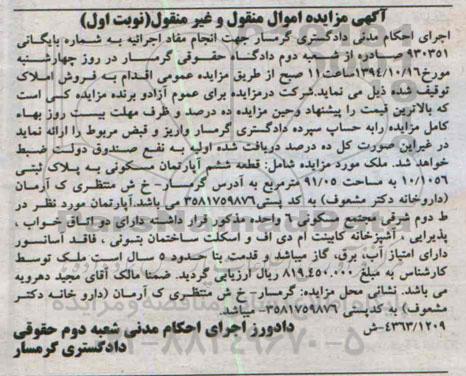 آگهی مزایده اموال منقول و غیر منقول(نوبت اول)
اجرای احکام مدنی دادگستری گرمسار جهت انجام مفاد اجرائیه به شماره بایگانی
۹۳۰۳۵۱ صادره از شعبه دوم دادگاه حقوقی گرمسار در روز چهارشنبه
مورخ۱۳۹۴/۱۰/۱۶ساعت۱۱ صبح از طریق مزایده عمومی اقدام به فروش املاک
توقیف شده ذیل می نماید.شرکت درمزایده برای عموم آزادو برنده مزایده کسی است
که بالاترین قیمت را پیشنهاد وحین مزایده ده درصد و ظرف مهلت بیست روز بهاء
کامل مزایده رابه حساب سپرده دادگستری گرمسار واریز و قبض مربوط را ارائه نماید
در غیراین صورت کل ده درصد دریافت شده اولیه به نفع صندوق دولت ضبط
خواهد شد. ملک مورد مزایده شامل: قطعه ششم آپارتمان مسکونی به پلاک ثبتی
۱۰/۱۰۵۶ به مساحت ۹۱/۰۵ مترمربع به آدرس گرمسار- خ ش منتظری ک آرمان
(داروخانه دکتر مشعوف) به کد پستی۳۵۸۱۷۵۹۸۷۶ می باشد.آپارتمان مورد نظر در
ط دوم شرقی مجتمع مسکونی ۶ واحده مذکور قرار داشته دارای دو اتاق خواب ،
پذیرایی ، آشپزخانه کابینت ام دی اف و اسکلت ساختمان بتونی ، فاقد آسانسور
دارای امتیاز آب، برق، گاز میباشد و قدمت بنا حدود ۵ سال است ملک توسط
کارشناس به مبلغ ۸۱۹.۴۵۰.۰۰۰ ریال ارزیابی گردید. ضمنا مالک آقای مجید دهرویه
می باشد. نشانی محل مزایده: گرمسار- خ ش منتظری ک آرمان (دارو خانه دکتر
مشعوف) به کدپستی ۳۵۸۱۷۵۹۸۷۶- میباشد.
۴۳۶۳/۱۲۰۹-ش دادورز اجرای احکام مدنی شعبه دوم حقوقی
دادگستری گرمسار